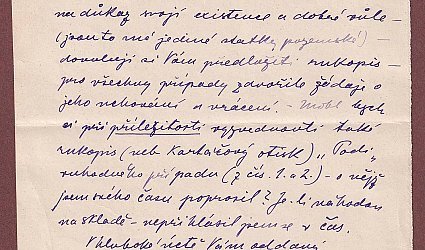 na důkaz svojí existence a dobré vůle –
(jsou to mé jediné statky pozemské) –
dovoluji si Vám předložiti rukopis –
pro všechny případy zdvořile žádaje o
jeho uchování a vrácení. – Mohl bych
si při příležitosti vyzvednouti také
rukopis (neb kartáčový otisk) „Podi-
vuhodného případu (z čís. 1. a 2.) – o nějž
jsem svého času poprosil? Je-li náhodou
na skladě – nepřihlásil jsem se v čas.
V hluboké úctě Vám oddaný